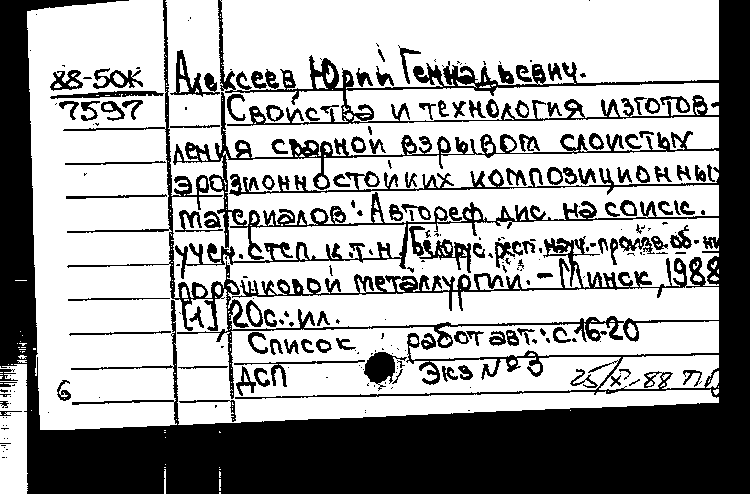 88-50К Алексеев Юрий Геннадьевич.
7597 Свойства и технология изготов-
ления сваркой взрывом слоистых
эрозионностойких композиционных
материалов: Автореф. дис. на соиск.
учен. степ. к.т.н / Белорус. респ. науч.-произв. об-ни
порошковой металлургии. – Минск, 1988
[1], 20с.: ил.
Список работ авт.: с. 16-20
ДСП Экз №3 25/XI-88
6